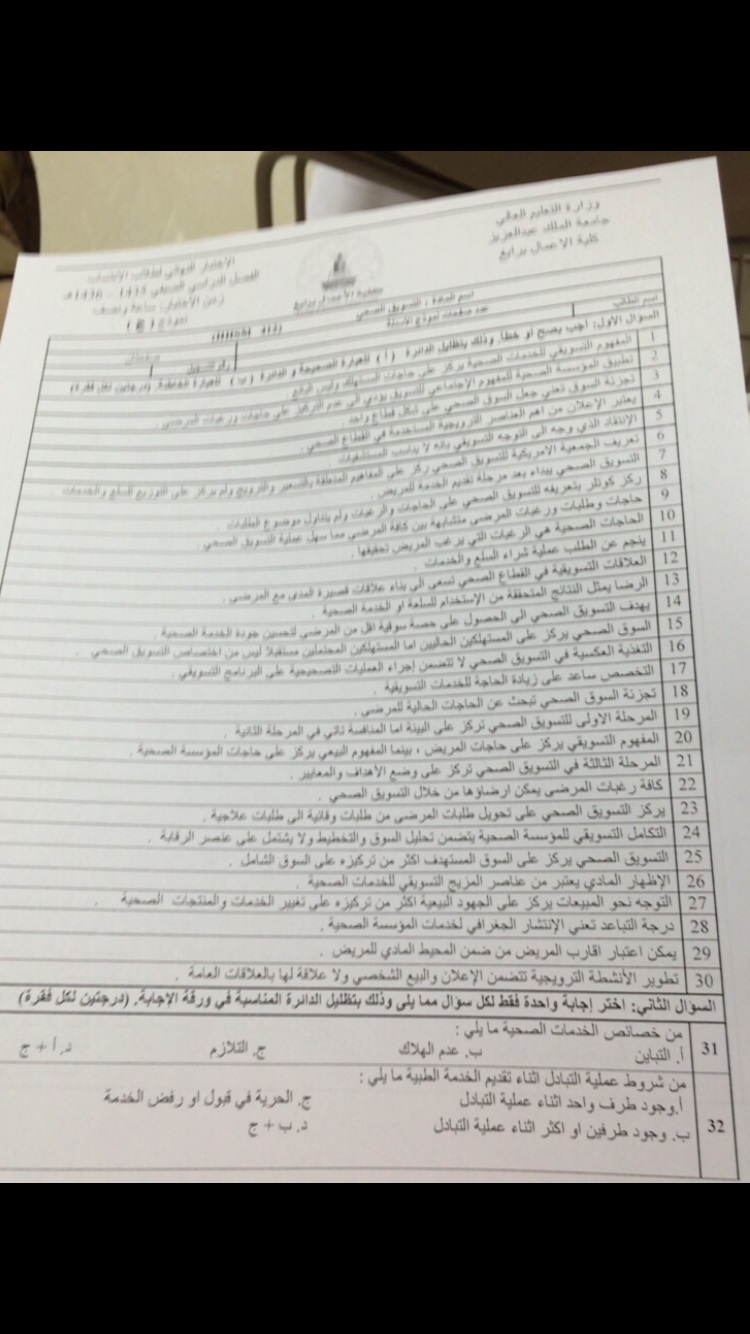 وزارة التعليم العالي
جامعة الملك عبدالعزيز
كلية الاعمال برابغ
الاختبار النهائي لطلاب الانتساب
الفصل الدراسي الصيفي 1435 – 1436هـ
زمن الاختبار: ساعة ونصف
نموذج (
كلية الأعمال برابغ
اسم المادة : التسويق الصحي
اسم الطالب
عدد صفحات نموذج الأسئلة
رقم التسجيل
السؤال الأول: أجب بصح أو خطأ، وذلك بتظليل الدائرة ( أ ) للعبارة الصحيحة و الدائرة ( ب ) للعبارة الخاطئة. (درجتين لكل فقرة)
1 المفهوم التسويقي للخدمات الصحية يركز على حاجات المستهلك وليس البائع .
2 تطبيق المؤسسة الصحية للمفهوم الإجتماعي للتسويق يؤدي الى عدم التركيز على حاجات ورغبات المرضى .
3 تجزئة السوق تعني جعل السوق الصحي على شكل قطاع واحد .
4 يعتبر الإعلان من اهم العناصر الترويجية المستخدمة في القطاع الصحي .
5 الإنتقاد الذي وجه الى التوجه التسويقي بانه لا يناسب المستشفيات
6 تعريف الجمعية الامريكية للتسويق الصحي ركز على المفاهيم المتعلقة بالتسعير والترويج ولم يركز على التوزيع السلع والخدمات .
7 التسويق الصحي يبداء بعد مرحلة تقديم الخدمة للمريض .
8 ركز كوتلر بتعريفه للتسويق الصحي على الحاجات والرغبات ولم يتناول موضوع الطلبات .
9 حاجات وطلبات ورغبات المرضى متشابهة بين كافة المرضى مما سهل عملية التسويق الصحي .
10 الحاجات الصحية هي الرغبات التي يرغب المريض تحقيقها .
11 ينجم عن الطلب عملية شراء السلع والخدمات .
12 العلاقات التسويقية في القطاع الصحي تسعى الى بناء علاقات قصيرة المدى مع المرضى .
13 الرضا يمثل النتائج المتحققة من الإستخدام للسلعة او الخدمة الصحية .
14 يهدف التسويق الصحي الى الحصول على حصة سوقية اقل من المرضى لتحسين جودة الخدمة الصحية .
15 السوق الصحي يركز على المستهلكين الحاليين اما المستهلكين المحتملين مستقبلاً ليس من اختصاص التسويق الصحي .
16 التغذية العكسية في التسويق الصحي لا تتضمن إجراء العمليات التصحيحية على البرنامج التسويقي .
17 التخصص ساعد على زيادة الحاجة للخدمات التسويقية .
18 تجزئة السوق الصحي تبحث عن الحاجات الحالية للمرضى .
19 المرحلة الاولى للتسويق الصحي تركز على البيئة اما المنافسة تاتي في المرحلة الثانية .
20 المفهوم التسويقي يركز على حاجات المريض ، بينما المفهوم البيعي يركز على حاجات المؤسسة الصحية .
21 المرحلة الثالثة في التسويق الصحي تركز على وضع الأهداف والمعايير .
22 كافة رغبات المرضى يمكن ارضاؤها من خلال التسويق الصحي .
23 يركز التسويق الصحي على تحويل طلبات المرضى من طلبات وقائية الى طلبات علاجية .
24 التكامل التسويقي للمؤسسة الصحية يتضمن تحليل السوق والتخطيط ولا يشتمل على عنصر الرقابة .
25 التسويق الصحي يركز على السوق المستهدف اكثر من تركيزه على السوق الشامل .
26 الإظهار المادي يعتبر من عناصر المزيج التسويقي للخدمات الصحية .
27 التوجه نحو المبيعات يركز على الجهود البيعية اكثر من تركيزه على تغيير الخدمات والمنتجات الصحية .
28 درجة التباعد تعني الإنتشار الجغرافي لخدمات المؤسسة الصحية .
29 يمكن اعتبار اقارب المريض من ضمن المحيط المادي للمريض .
30 تطوير الأنشطة الترويجية تتضمن الإعلان والبيع الشخصي ولا علاقة لها بالعلاقات العامة .
السؤال الثاني: اختر إجابة واحدة فقط لكل سؤال مما يلي وذلك بتظليل الدائرة المناسبة في ورقة الإجابة. (درجتين لكل فقرة)
31 من خصائص الخدمات الصحية ما يلي :
أ. التباين ب. عدم الهلاك ج. التلازم د. أ + ج
32 من شروط عملية التبادل اثناء تقديم الخدمة الطبية ما يلي :
أ.وجود طرف واحد اثناء عملية التبادل ج. الحرية في قبول او رفض الخدمة
ب. وجود طرفين او اكثر اثناء عملية التبادل د. ب + ج